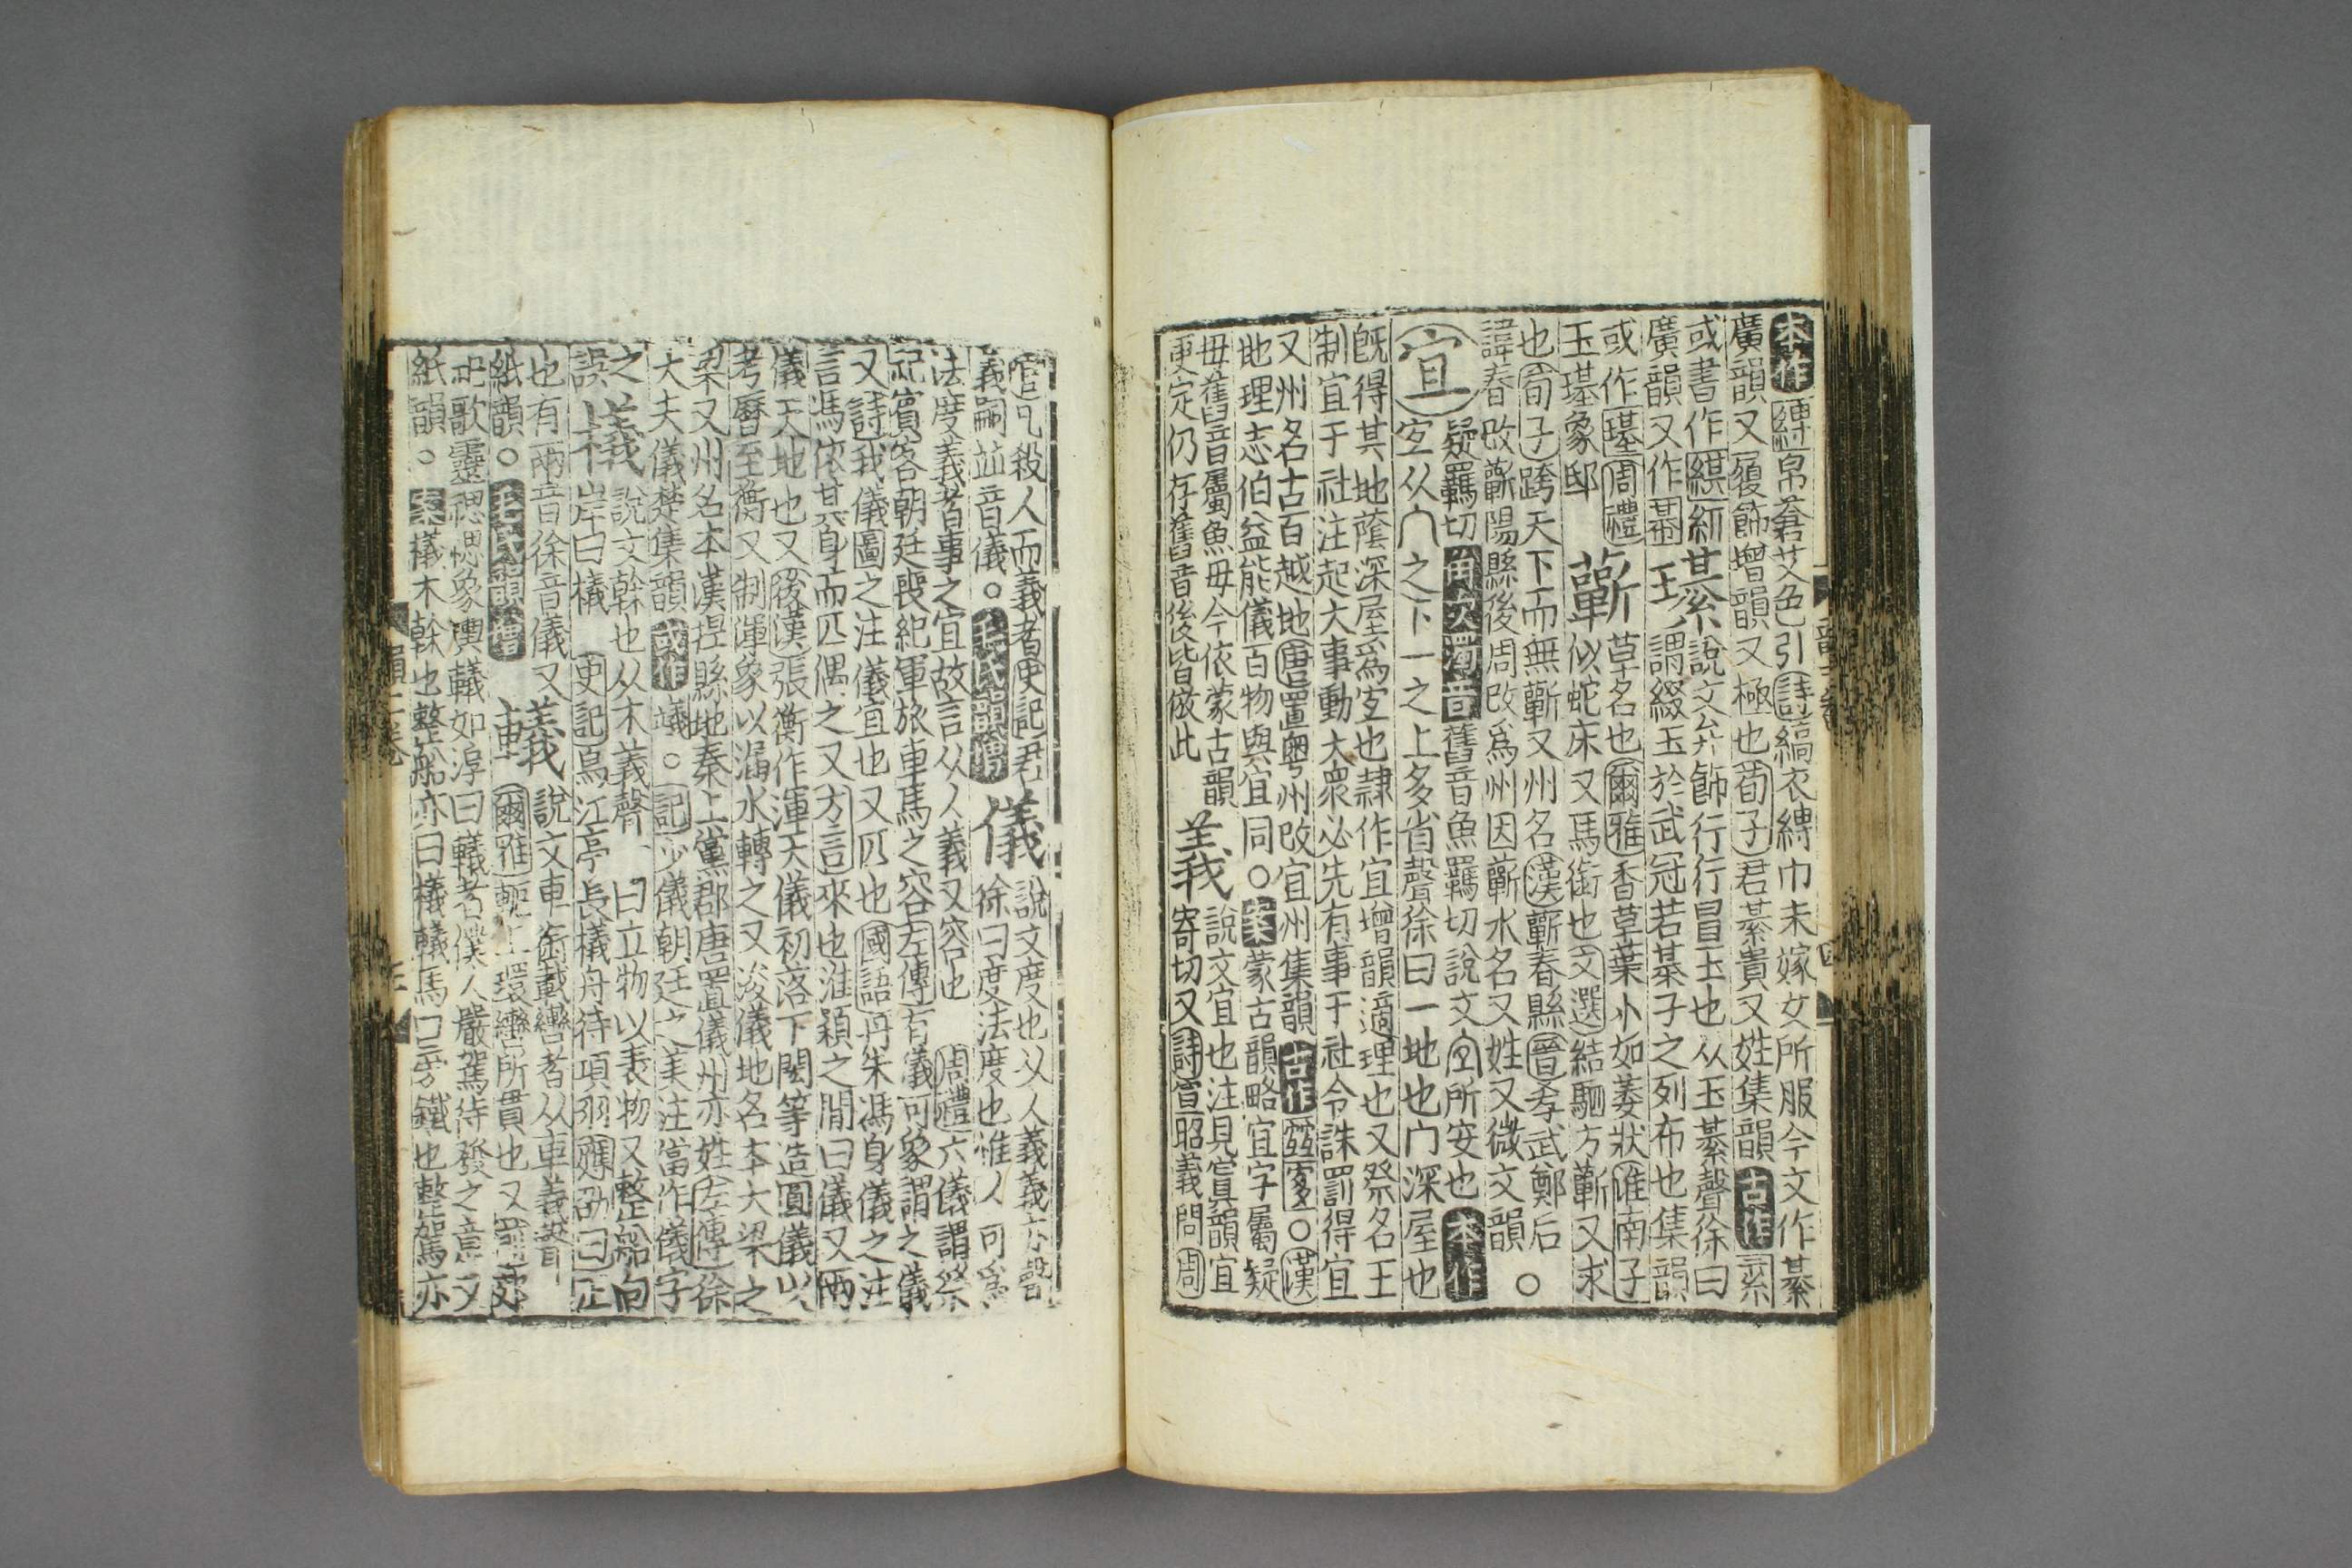 本作縛帛蒼艾色引詩縞衣縛巾未嫁女所服今文作綦
廣韻又履飾增韻又極也荀子君綦貴又姓集韻古作
或書作綨
璂說文弁飾行行冒玉也从玉綦聲徐曰
廣韻又作謂綴玉於武冠若棊子之列布也集韻
或作璂周禮
玉璂象邸
蘄草名也爾雅香草葉小如萎狀淮南子
似蛇床又馬銜也文選結駟方蘄又求
也荀子跨天下而無蘄又州名漢蘄春縣晉孝武鄭后
諱春改蘄陽縣後周改爲州因蘄水名又姓又微文韻○
宜疑羈切角次濁音舊音魚羈切說文宜所安也本作
宐从宀之下一之上多省聲徐曰一地也宀深屋也
旣得其地蔭深屋爲宐也隷作宜增韻適理也又祭名王
制宜于社注起大事動大衆必先有事于社令誅罰得宜
又州名古百越地唐置粵州改宜州集韻古作○漢
地理志伯益能儀百物與宜同○案蒙古韻略宜字屬疑
母舊音屬魚母今依蒙古韻
更定仍存舊音後皆倣此
義說文宜也注見寘韻宜
寄切又詩宣昭義問周
凡殺人而義者史記君
義嗣並音儀○毛氏韻增
儀說文度也从人義義亦聲
徐曰度法度也惟人可爲
法度義者事之宜故言从人義又容也周禮六儀謂祭
祀賓客朝廷喪紀軍旅車馬之容左傳有儀可象謂之儀
又詩我儀圖之注儀宜也又匹也國語丹朱馮身儀之注
言馮依其身而匹偶之又方言來也淮潁之間曰儀又兩
儀天地也又後漢張衡作渾天儀初落下閎等造圓儀以
考曆至衡又制渾象以漏水轉之又浚儀地名本大梁之
梁又州名本漢捏縣地秦上黨郡唐置儀州亦姓左傳徐
大夫儀楚集韻或作㬢○記少儀朝廷之美注當作儀字
之
誤
檥說文榦也从木義聲曰立物以表物又整船向
岸曰檥史記烏江亭長檥舟待項羽應劭曰正
也有兩音徐音儀又
紙韻○毛氏韻增
轙說文車衡載轡者从車義聲
爾雅軛上環轡所貫也又
祀歌靈禗禗象輿轙如淳曰轙者僕人嚴駕待發之意又
紙韻○案檥木榦也整船亦曰檥轙馬口旁鐵也整駕亦